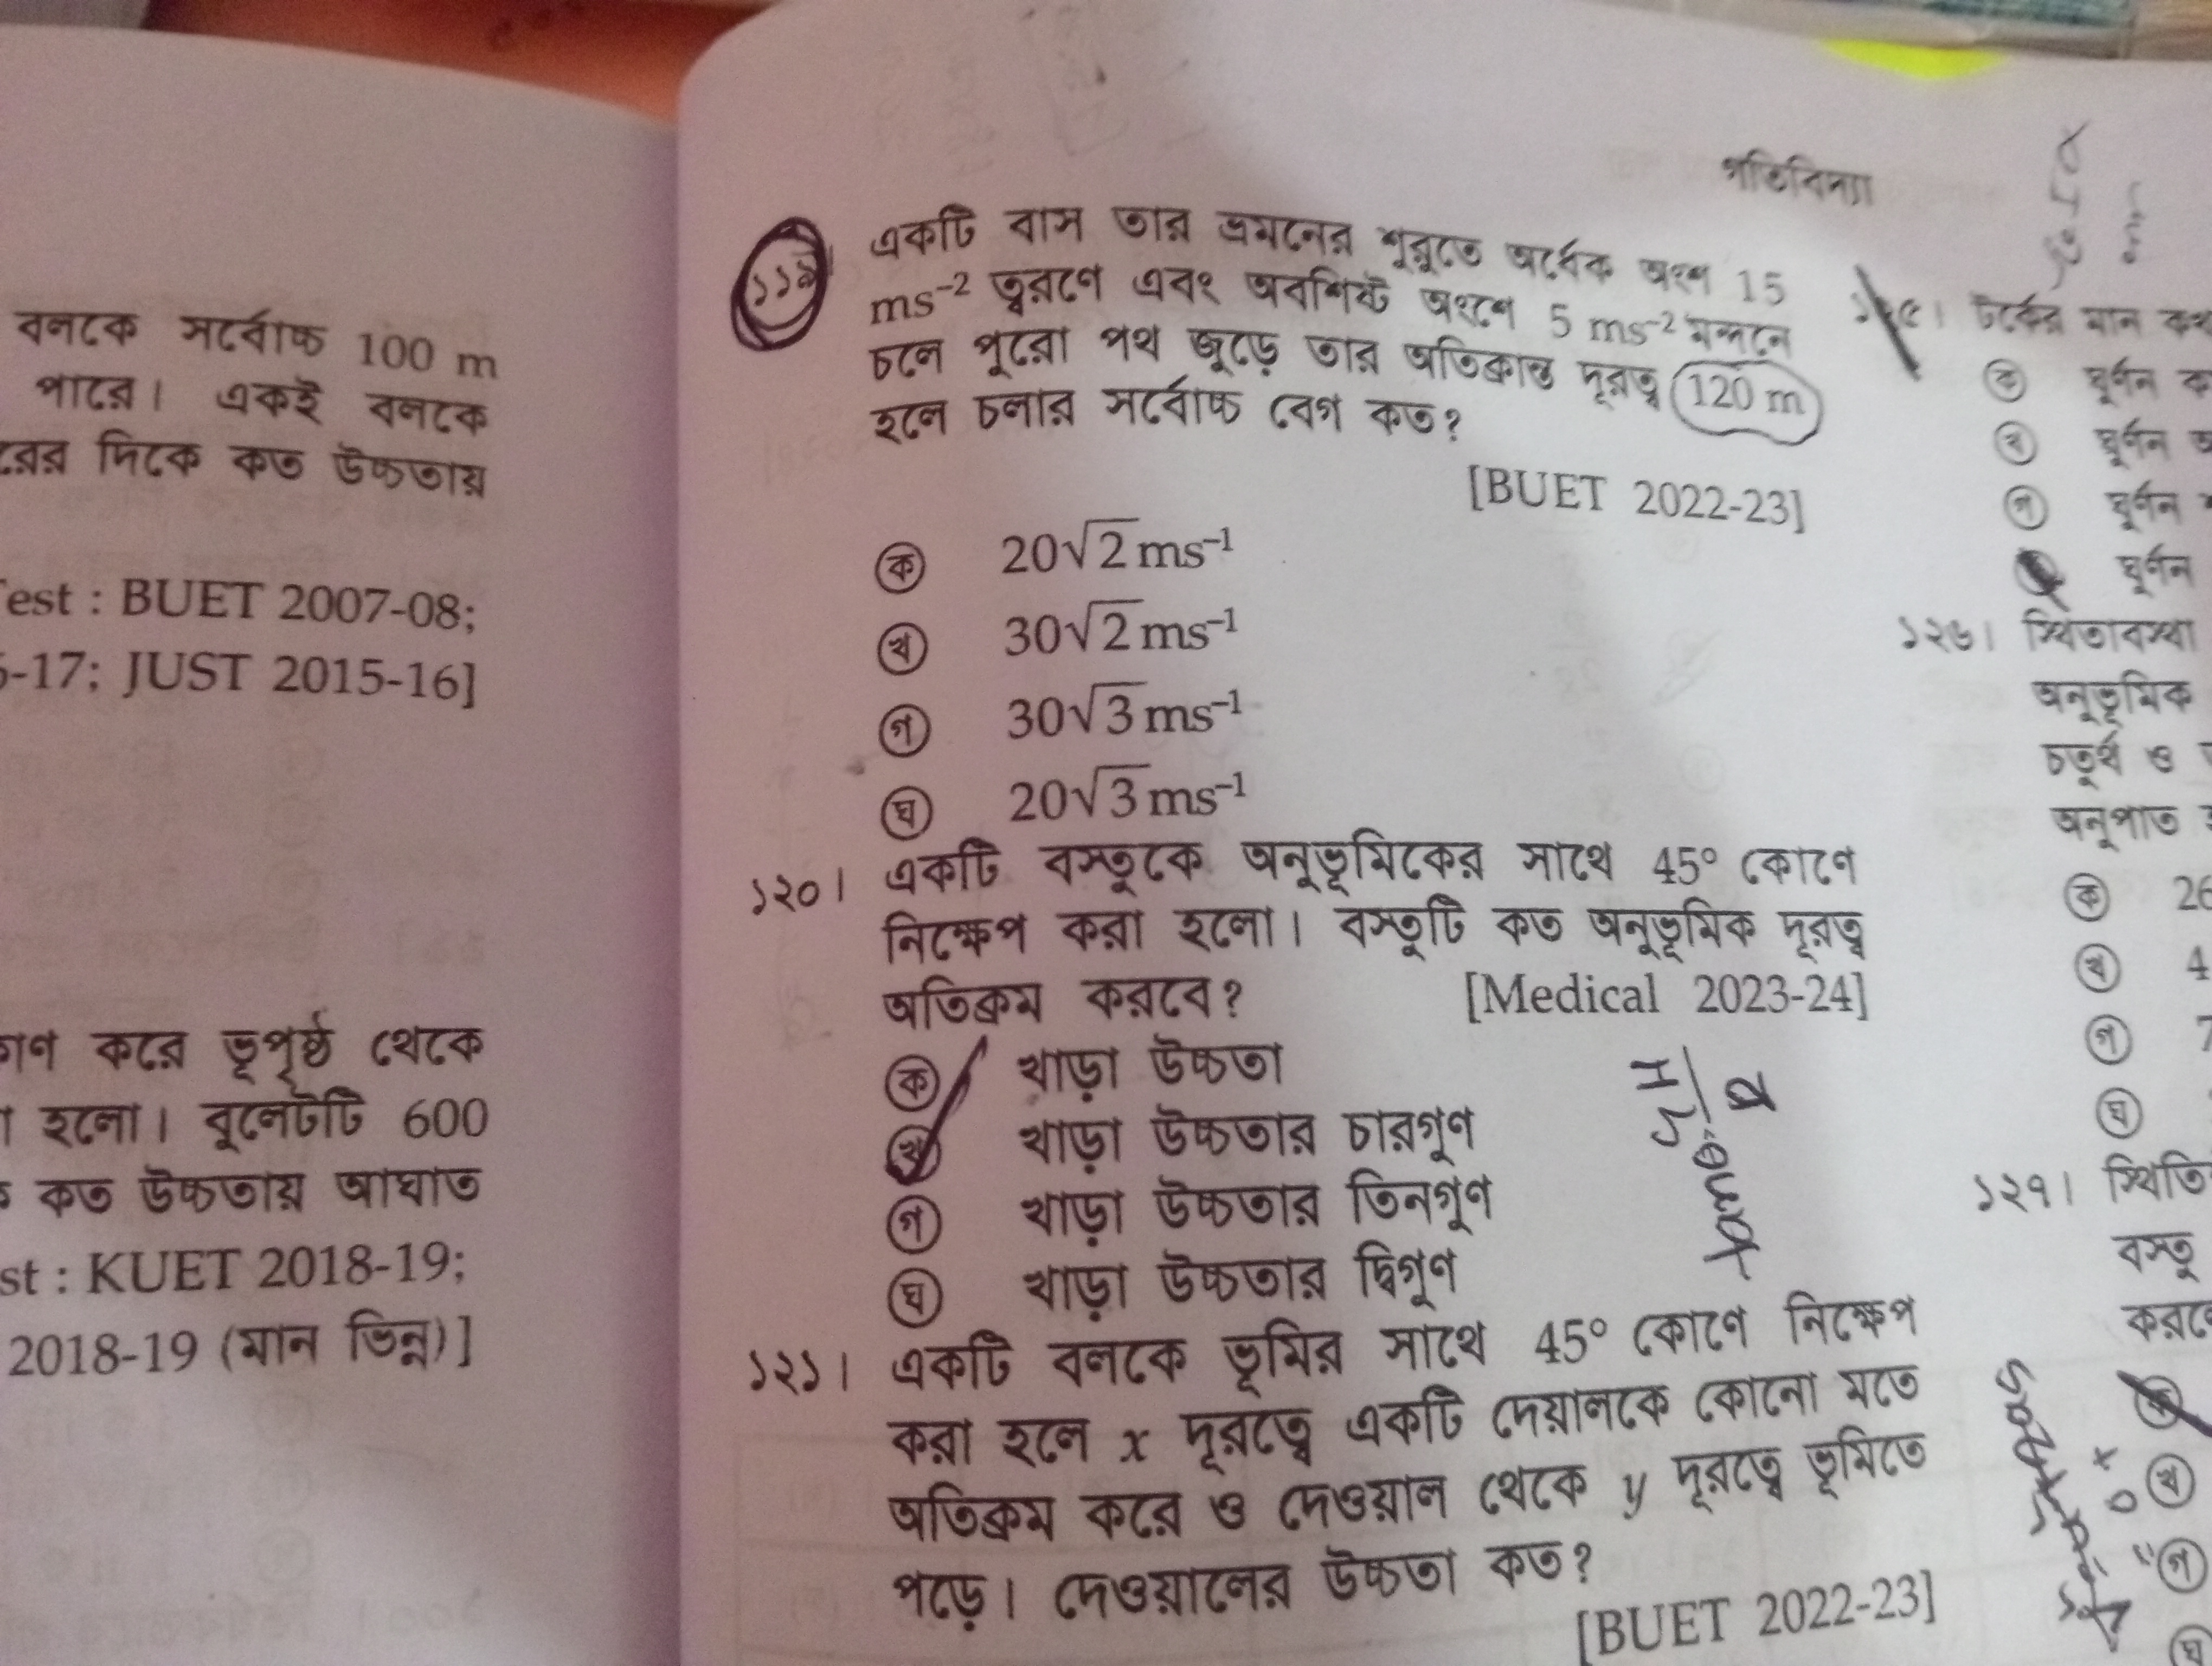 বলকে সর্বোচ্চ 100 m
পারে। একই বলকে
রের দিকে কত উচ্চতায়
est : BUET 2007-08;
-17; JUST 2015-16]
কোণ করে ভূপৃষ্ঠ থেকে
হলো। বুলেটটি 600
কত উচ্চতায় আঘাত
st : KUET 2018-19;
2018-19 (মান ভিন্ন)]
গতিবিদ্যা
১১৯
একটি বাস তার ভ্রমনের শুরুতে অর্ধেক অংশ 15
ms⁻² ত্বরণে এবং অবশিষ্ট অংশে 5 ms⁻² মন্দনে
চলে পুরো পথ জুড়ে তার অতিক্রান্ত দূরত্ব 120 m
হলে চলার সর্বোচ্চ বেগ কত?
[BUET 2022-23]
ক 20√2 ms⁻¹
খ 30√2 ms⁻¹
গ 30√3 ms⁻¹
ঘ 20√3 ms⁻¹
১২০। একটি বস্তুকে অনুভূমিকের সাথে 45° কোণে
নিক্ষেপ করা হলো। বস্তুটি কত অনুভূমিক দূরত্ব
অতিক্রম করবে? [Medical 2023-24]
ক খাড়া উচ্চতা
খ খাড়া উচ্চতার চারগুণ
গ খাড়া উচ্চতার তিনগুণ
ঘ খাড়া উচ্চতার দ্বিগুণ
১২১। একটি বলকে ভূমির সাথে 45° কোণে নিক্ষেপ
করা হলে x দূরত্বে একটি দেয়ালকে কোনো মতে
অতিক্রম করে ও দেওয়াল থেকে y দূরত্বে ভূমিতে
পড়ে। দেওয়ালের উচ্চতা কত?
[BUET 2022-23]
টর্কের মান
ক ঘূর্ণন
খ ঘূর্ণন
গ ঘূর্ণন
ঘূর্ণন
১২৬। স্থিতাবস্থা
অনুভূমিক
চতুর্থ ও
অনুপাত
ক 26
খ 4
গ 7
ঘ
১২৭। স্থিতি
বস্তু
করলে
খ
গ
ঘ